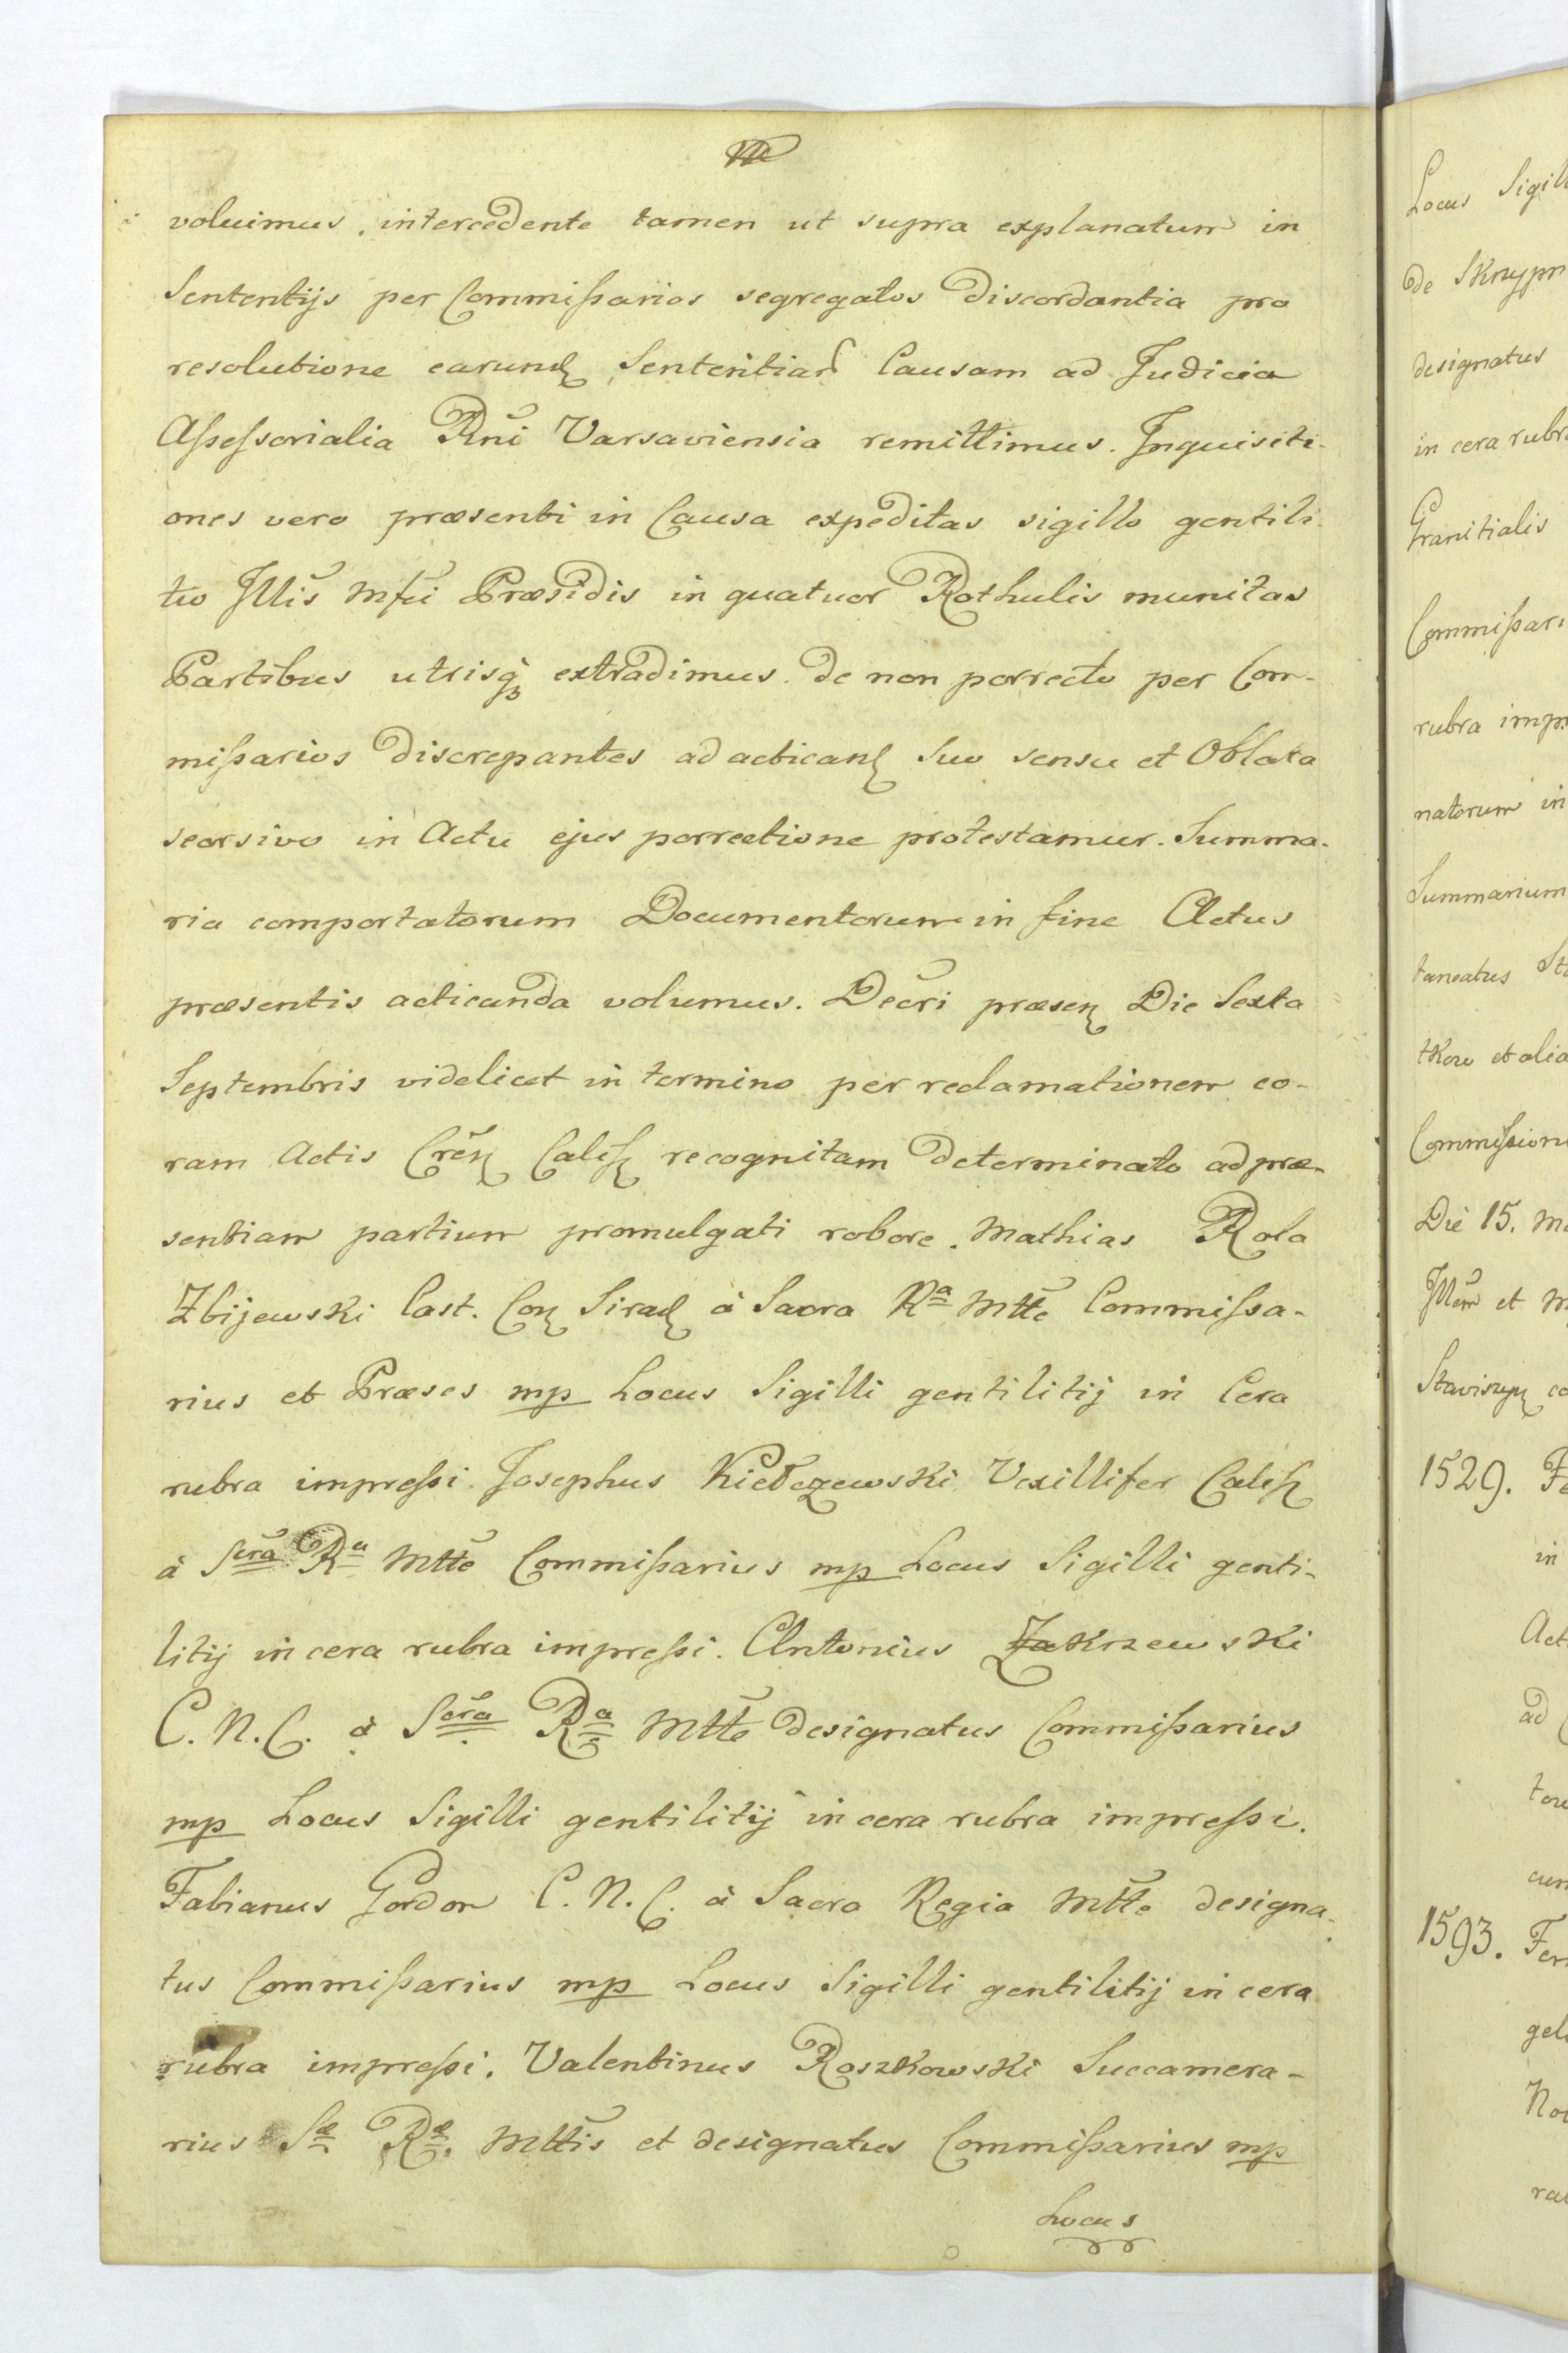 voluimus, intercedente tamen ut supra explanatum in
Sententijs per Commißarios segregatos discordantia pro
resolutione earund Sententiar Causam ad Judicia
Aßeßorialia Rnĩ Varsaviensia remittimus. Inquisiti-
ones vero præsenti in Causa expeditas sigillo gentili-
tio Jllis Mfci Præsidis in quatuor Rothulis munitas
Partibus utrisqꝫ extradimus. de non porrecto per Com-
mißarios discrepantes ad acticand suo sensu et Oblata
seorsivo in Actu ejus porrectione protestamur. Summa-
ria comportatorum Documentorum in fine Actus
præsentis acticanda volumus. Decri præsen Die Sexta
Septembris videlicet in termino per reclamationem co-
ram Actis Cren Caliss recognitam determinato ad præ-
sentiam partium promulgati robore. Mathias Rola
Zbijewski Cast. Con Sirad à Sacra Rª Mtte Commissa-
rius et Præses mp Locus Sigilli gentilitij in Cera
rubra impreßi. Josephus Kiełczewski Vexillifer Caliss
à Scra Rª Mtte Commißarius mp Locus Sigilli genti-
litij in cera rubra impreßi. Antonius Zakrzewski
C. N. C. à Scra Rª Mtte designatus Commißarius
mp Locus Sigilli gentilitij in cera rubra impreßi.
Fabianus Gordon C. N. C. à Sacra Regia Mtte designa-
tus Commißarius mp Locus Sigilli gentilitij in cera
rubra impreßi. Valentinus Roszkowski Succamera-
rius Sæ Ræ. Mttis et designatus Commißarius mp
Locus
Locus Sigill
de Skrzypn
designatus
in cera rubr
Granitialis
Commißari
rubra impr
natorum in
Summarium
taneatus
tkow et alia
Commißion
Die 15. M
Jllem et M
1529. Fe
in
Act
ad
cum
1593. Fer